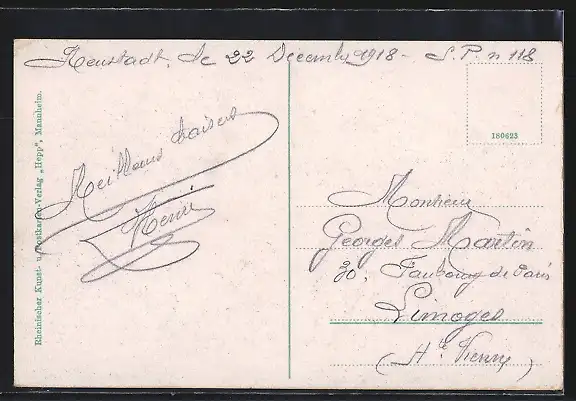 Neustadt, le 22 Décembre 1918 - S. P. n 118
Meilleurs baisers
Henri
Rheinischer Kunst- u. Postkarten-Verlag „Hepp", Mannheim.
180623
Monsieur
Georges Martin
30, Faubourg de Paris
Limoges
(Hte Vienne)